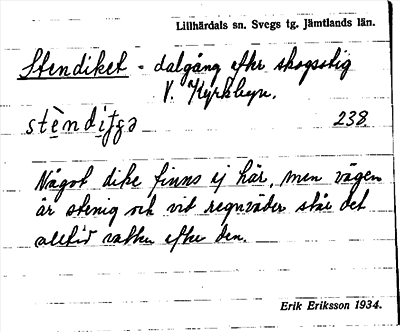 Lillhärdals sn. Svegs tg. Jämtlands län.
Stendiket - dalgång efter skogsstig
V. Kyrkbyn.
238.
Något dike finns ej här, men vägen
är stenig och vid regnväder står det
alltid vatten efter den.
Erik Eriksson 1934.